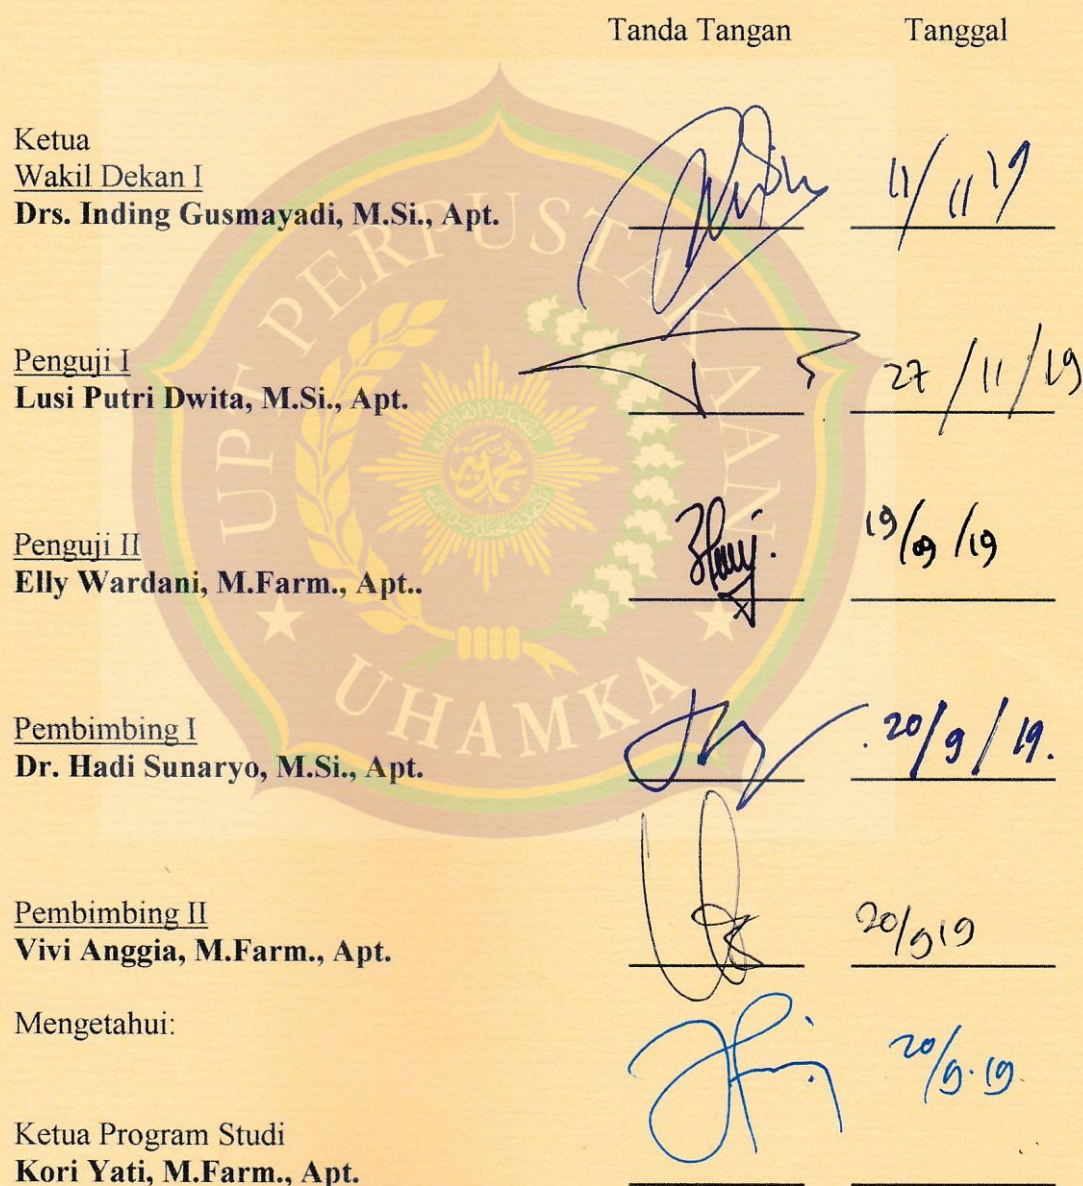 Tanda Tangan Tanggal
Ketua
Wakil Dekan I
Drs. Inding Gusmayadi, M.Si., Apt. 11/11 19
Penguji I
Lusi Putri Dwita, M.Si., Apt. 27/11/19
Penguji II
Elly Wardani, M.Farm., Apt.. 19/09/19
Pembimbing I
Dr. Hadi Sunaryo, M.Si., Apt. 20/9/19.
Pembimbing II
Vivi Anggia, M.Farm., Apt. 20/9 19
Mengetahui:
20/9.19.
Ketua Program Studi
Kori Yati, M.Farm., Apt.
UPT PERPUSTAKAAN
UHAMKA